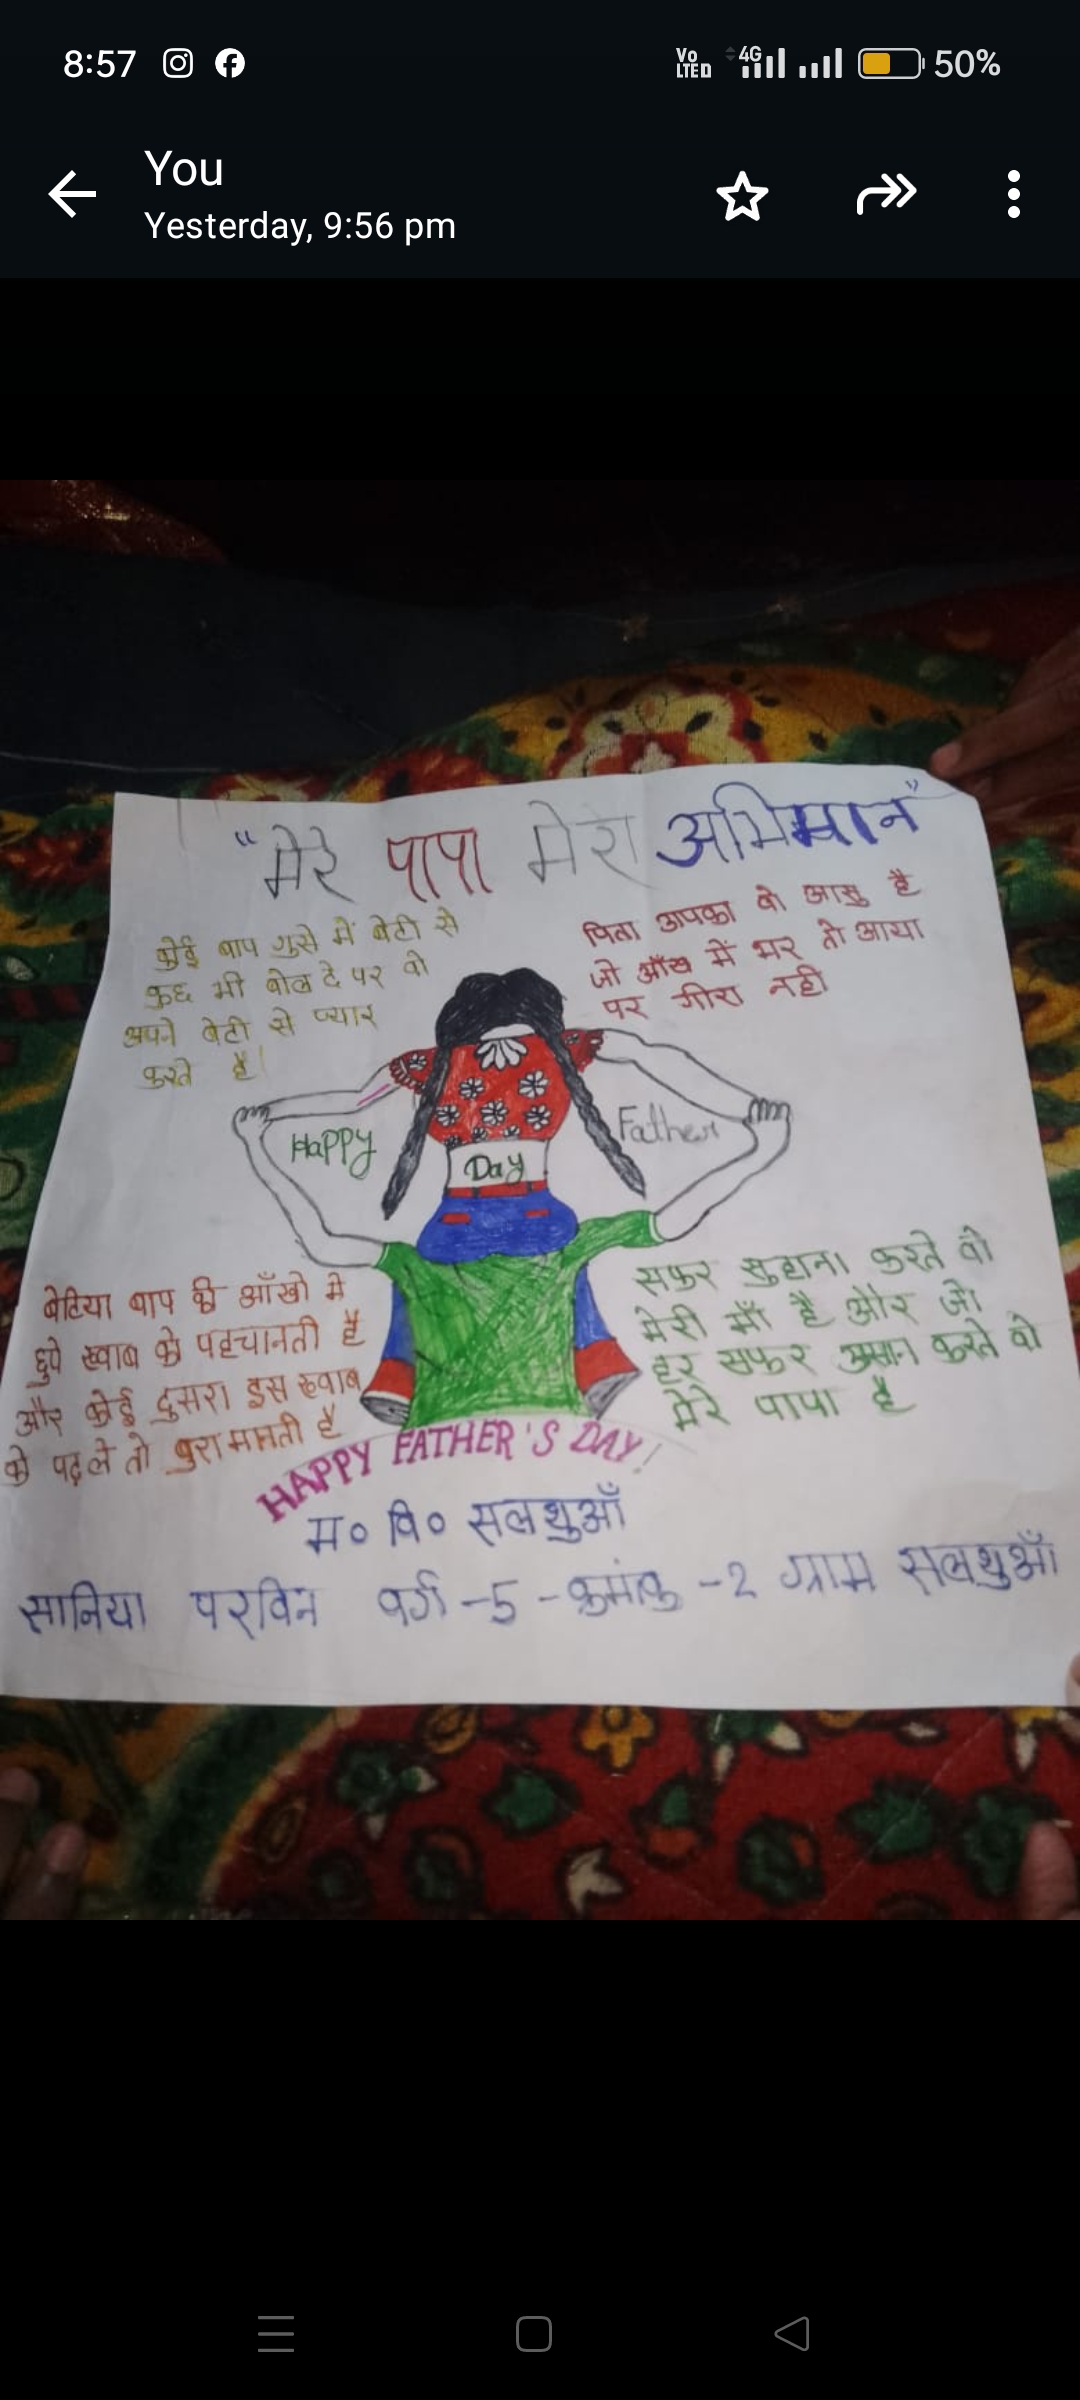 8:57
Vo LTE D 4G 50%
You
Yesterday, 9:56 pm
"मेरे पापा मेरा अभिमान"
कोई बाप गुसे में बेटी से
कुछ भी बोल दे पर वो
अपने बेटी से प्यार
करते है।
पिता आपका वो आसु है
जो आँख में भर तो आया
पर गीरा नही
Happy
Father
Day
बेटिया बाप की आँखो मे
छुपे ख्वाब को पहचानती है
और कोई दुसरा इस ख्वाब
को पढ़ ले तो बुरा मानती है
सफर सुहाना करते वो
मेरी माँ है और जो
हर सफर असान करते वो
मेरे पापा है
HAPPY FATHER'S DAY!
म० वि० सलथुआँ
सानिया परविन वर्ग -5 - क्रमांक -2 ग्राम सलथुआँ